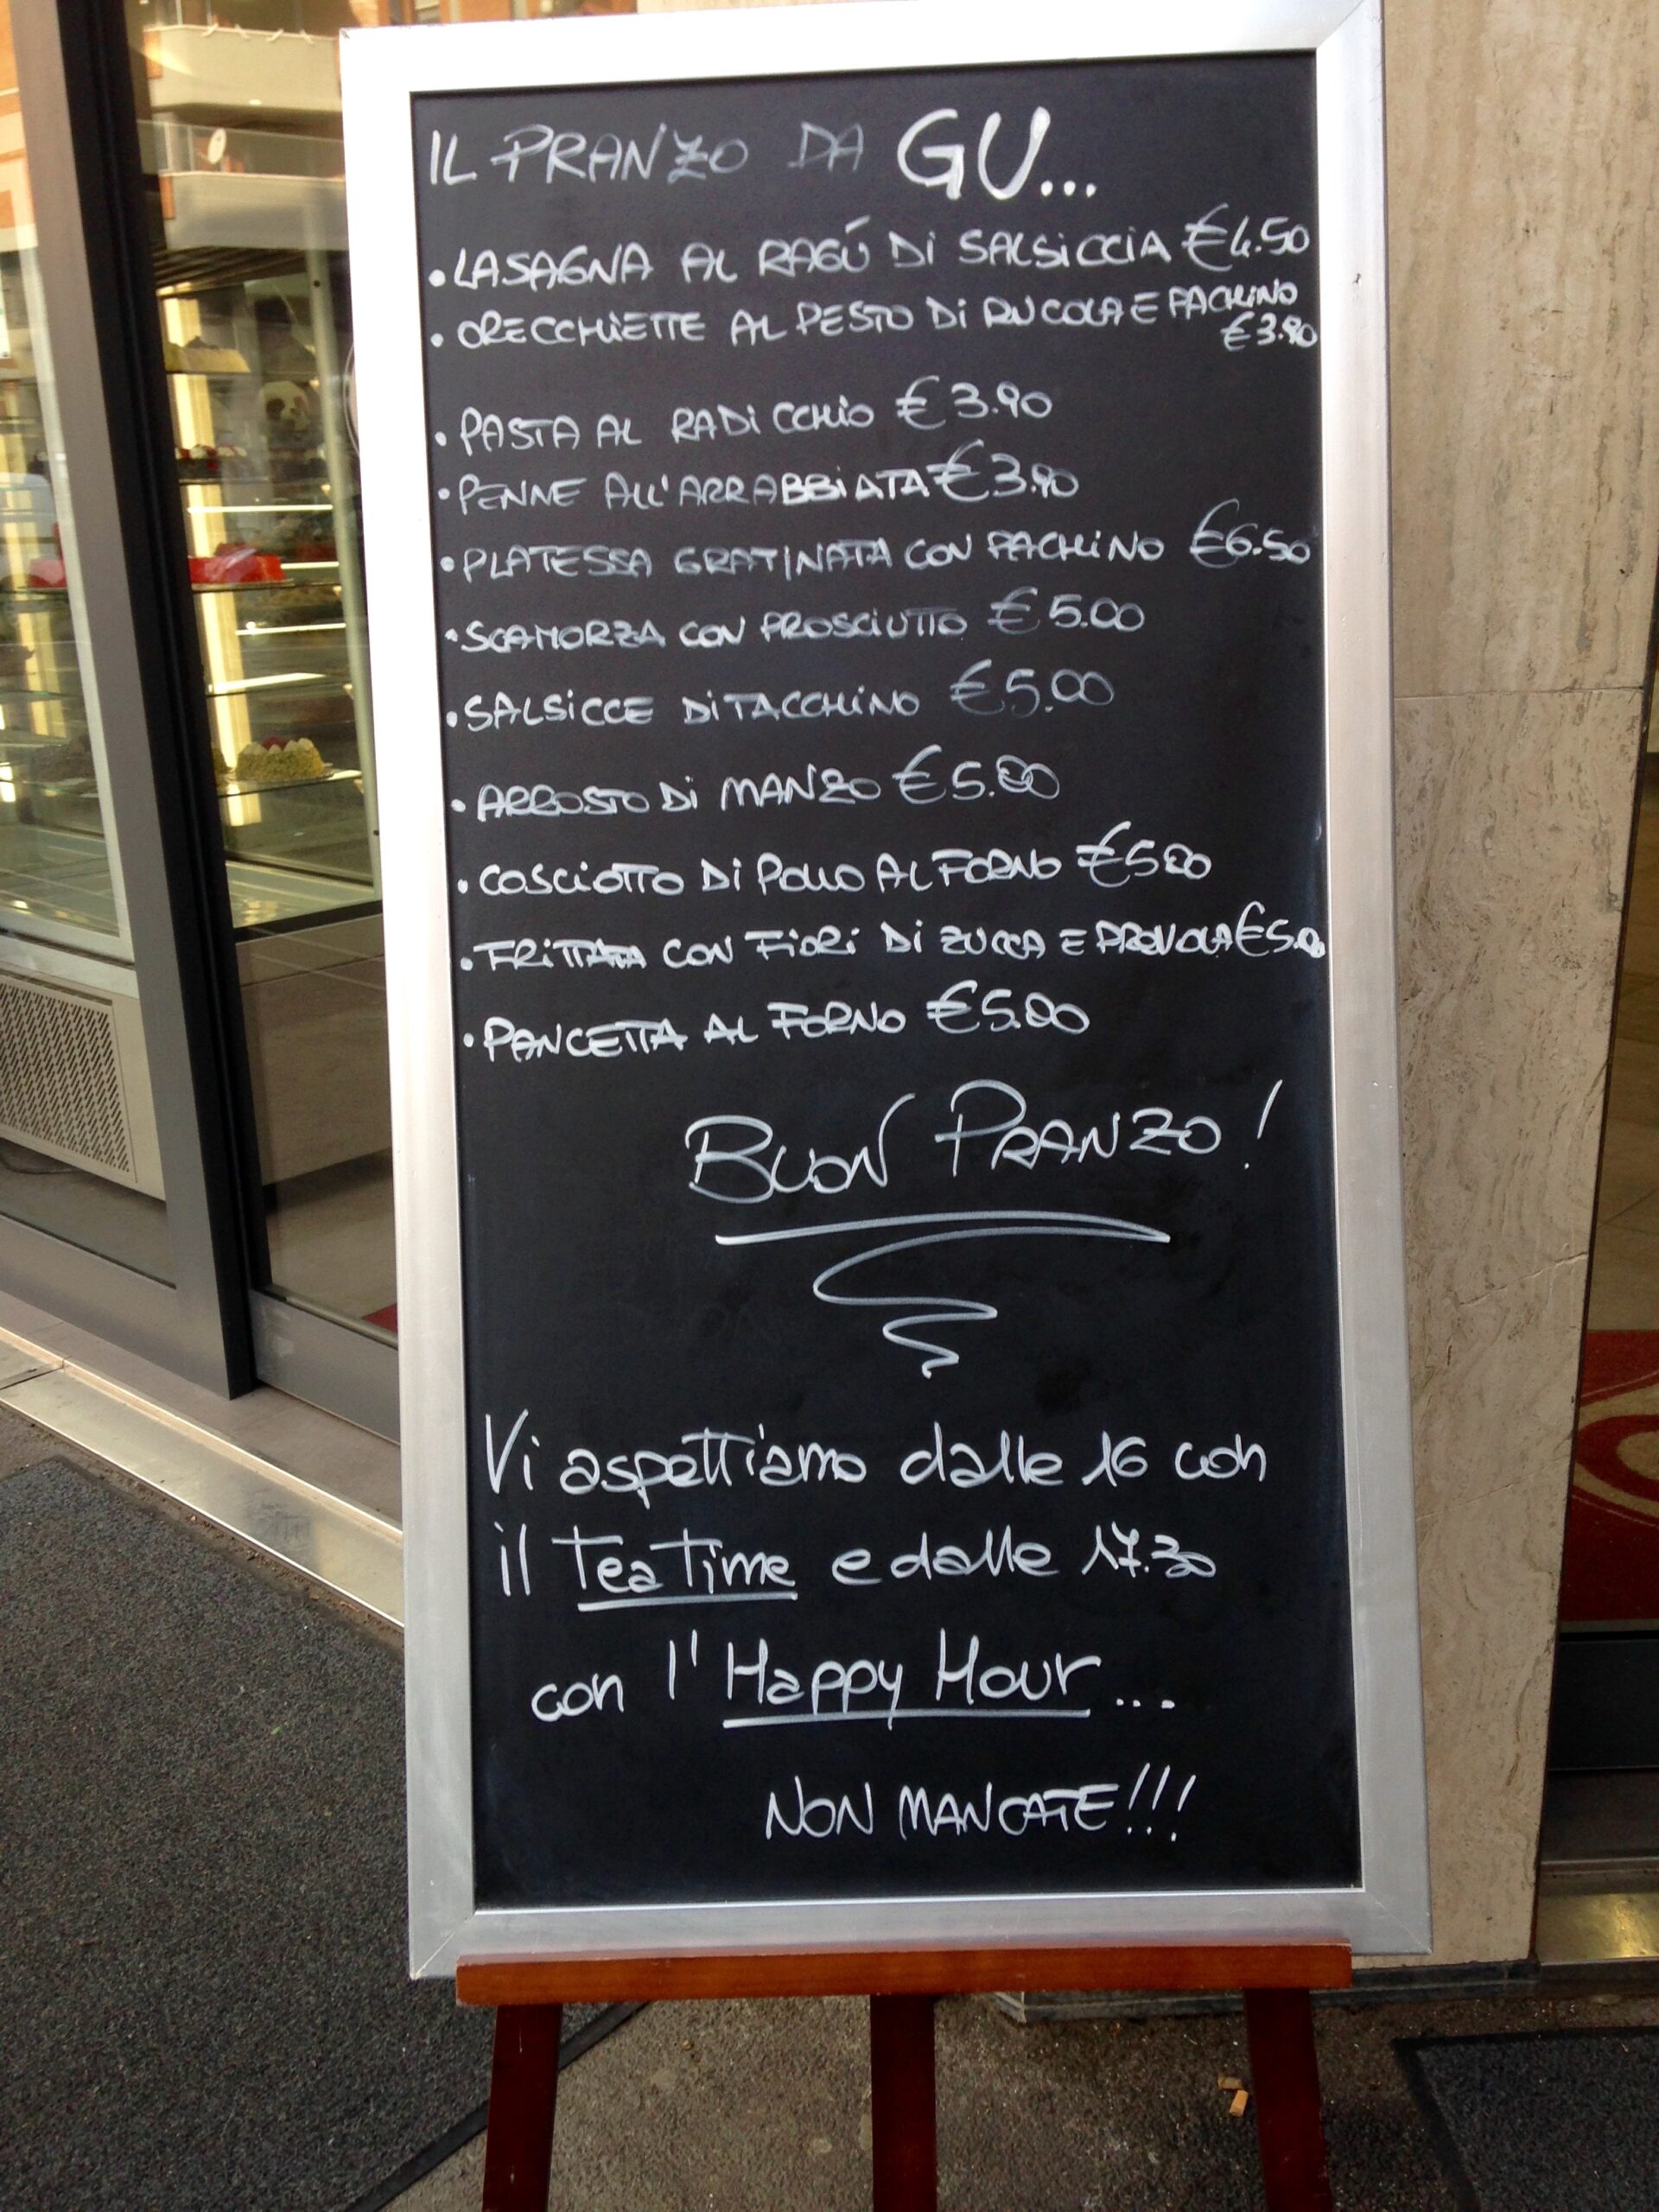 IL PRANZO DA GU...
• LASAGNA AL RAGÚ Di SALSiCCiA €4.50
• ORECCHiETTE AL PESTO Di RUCOLA E PACHiNO
€3.90
• PASTA AL RADiCCHiO €3.90
• PENNE ALL'ARRABBiATA €3.90
• PLATESSA GRATINATA CON PACHiNO €6.50
• SCAMORZA CON PROSCiUTTO €5.00
• SALSiCCE Di TACCHiNO €5.00
• ARROSTO Di MANZO
• COSCiOTTO Di POLLO AL FORNO
• FRiTTATA CON FiORi Di ZUCCA E PROVOLA
• PANCETTA AL FORNO
BUON PRANZO!
Vi aspettiamo dalle 16 con
il Tea Time e dalle 17.30
con l'Happy Hour...
NON MANCATE!!!